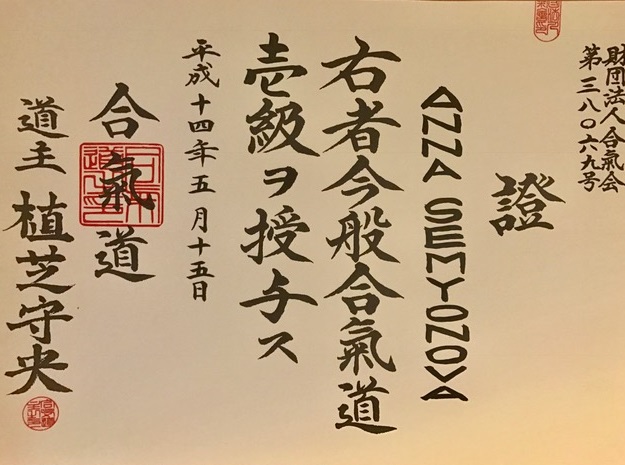 財団法人合氣会
第三八〇六九号
證
ANNA SEMYONOVA
右者今般合氣道
壱級ヲ授与ス
平成十四年五月十五日
合氣道
道主 植芝守央